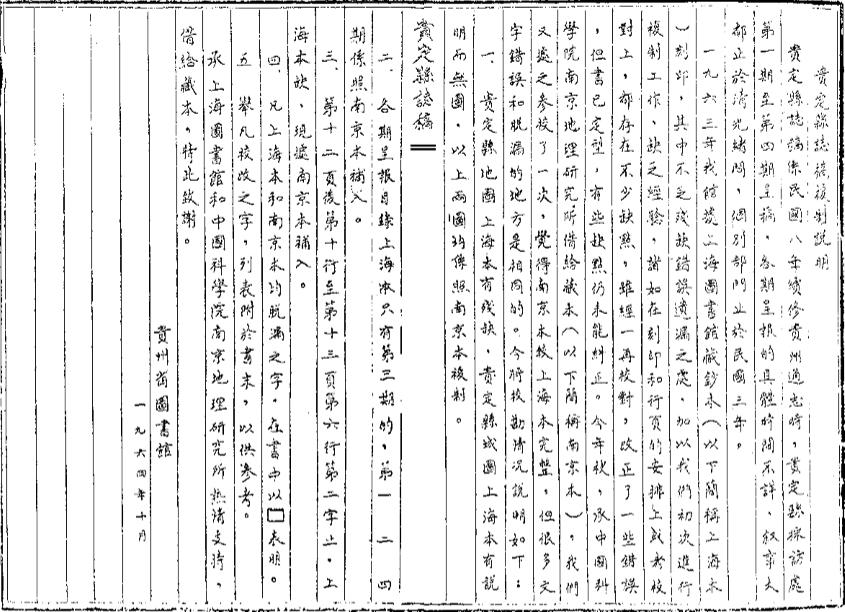 貴定縣誌稿複制説明
貴定縣誌稿係民國八年續修貴州通志時，貴定縣採訪處
第一期至第四期呈稿，各期呈報的具體時間不詳，叙事大
都止於清光緒間，個别部門止於民國三年。
一九六三年我館據上海圖書館藏鈔本（以下簡稱上海本
）刻印，其中不乏殘缺錯誤遺漏之處，加以我們初次進行
複制工作，缺乏經驗，諸如在刻印和行頁的安排上或者校
對上，都存在不少缺點，雖經一再校對，改正了一些錯誤
，但書已定型，有些缺點仍未能糾正。今年秋，承中國科
學院南京地理研究所借給藏本（以下簡稱南京本），我們
又據之參校了一次，覺得南京本較上海本完整，但很多文
字錯誤和脱漏的地方是相同的。今將校勘情况説明如下：
一、貴定縣地圖上海本有殘缺，貴定縣城圖上海本有説
明而無圖，以上兩圖均係照南京本複制。
貴定縣誌稿
二、各期呈報目録上海本只有第三期的，第一二四
期係照南京本補入。
三、第十二頁後第十行至第十三頁第六行第二字止，上
海本缺，現據南京本補入。
四、凡上海本和南京本均脱漏之字，在書中以□表明。
五、舉凡校改之字，列表附於書末，以供參考。
承上海圖書館和中國科學院南京地理研究所熱情支持，
借給藏本，特此致謝。
貴州省圖書館
一九六四年十月